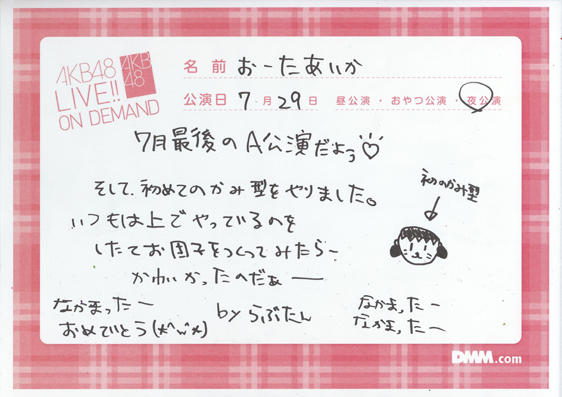 AKB48
LIVE!!
ON DEMAND
AKB
48
名前 おーたあいか
公演日 7月29日 昼公演・おやつ公演・夜公演
7月最後のA公演だよぅ♡
そして、初めてのかみ型をやりました。
いつもは上でやっているのを
したでお団子をつくってみたらー
かわいかったへだぁー
初のかみ型
なかまったー
おめでとう(*^ω^*)
by らぶたん
なかまったー
なかまったー
DMM.com